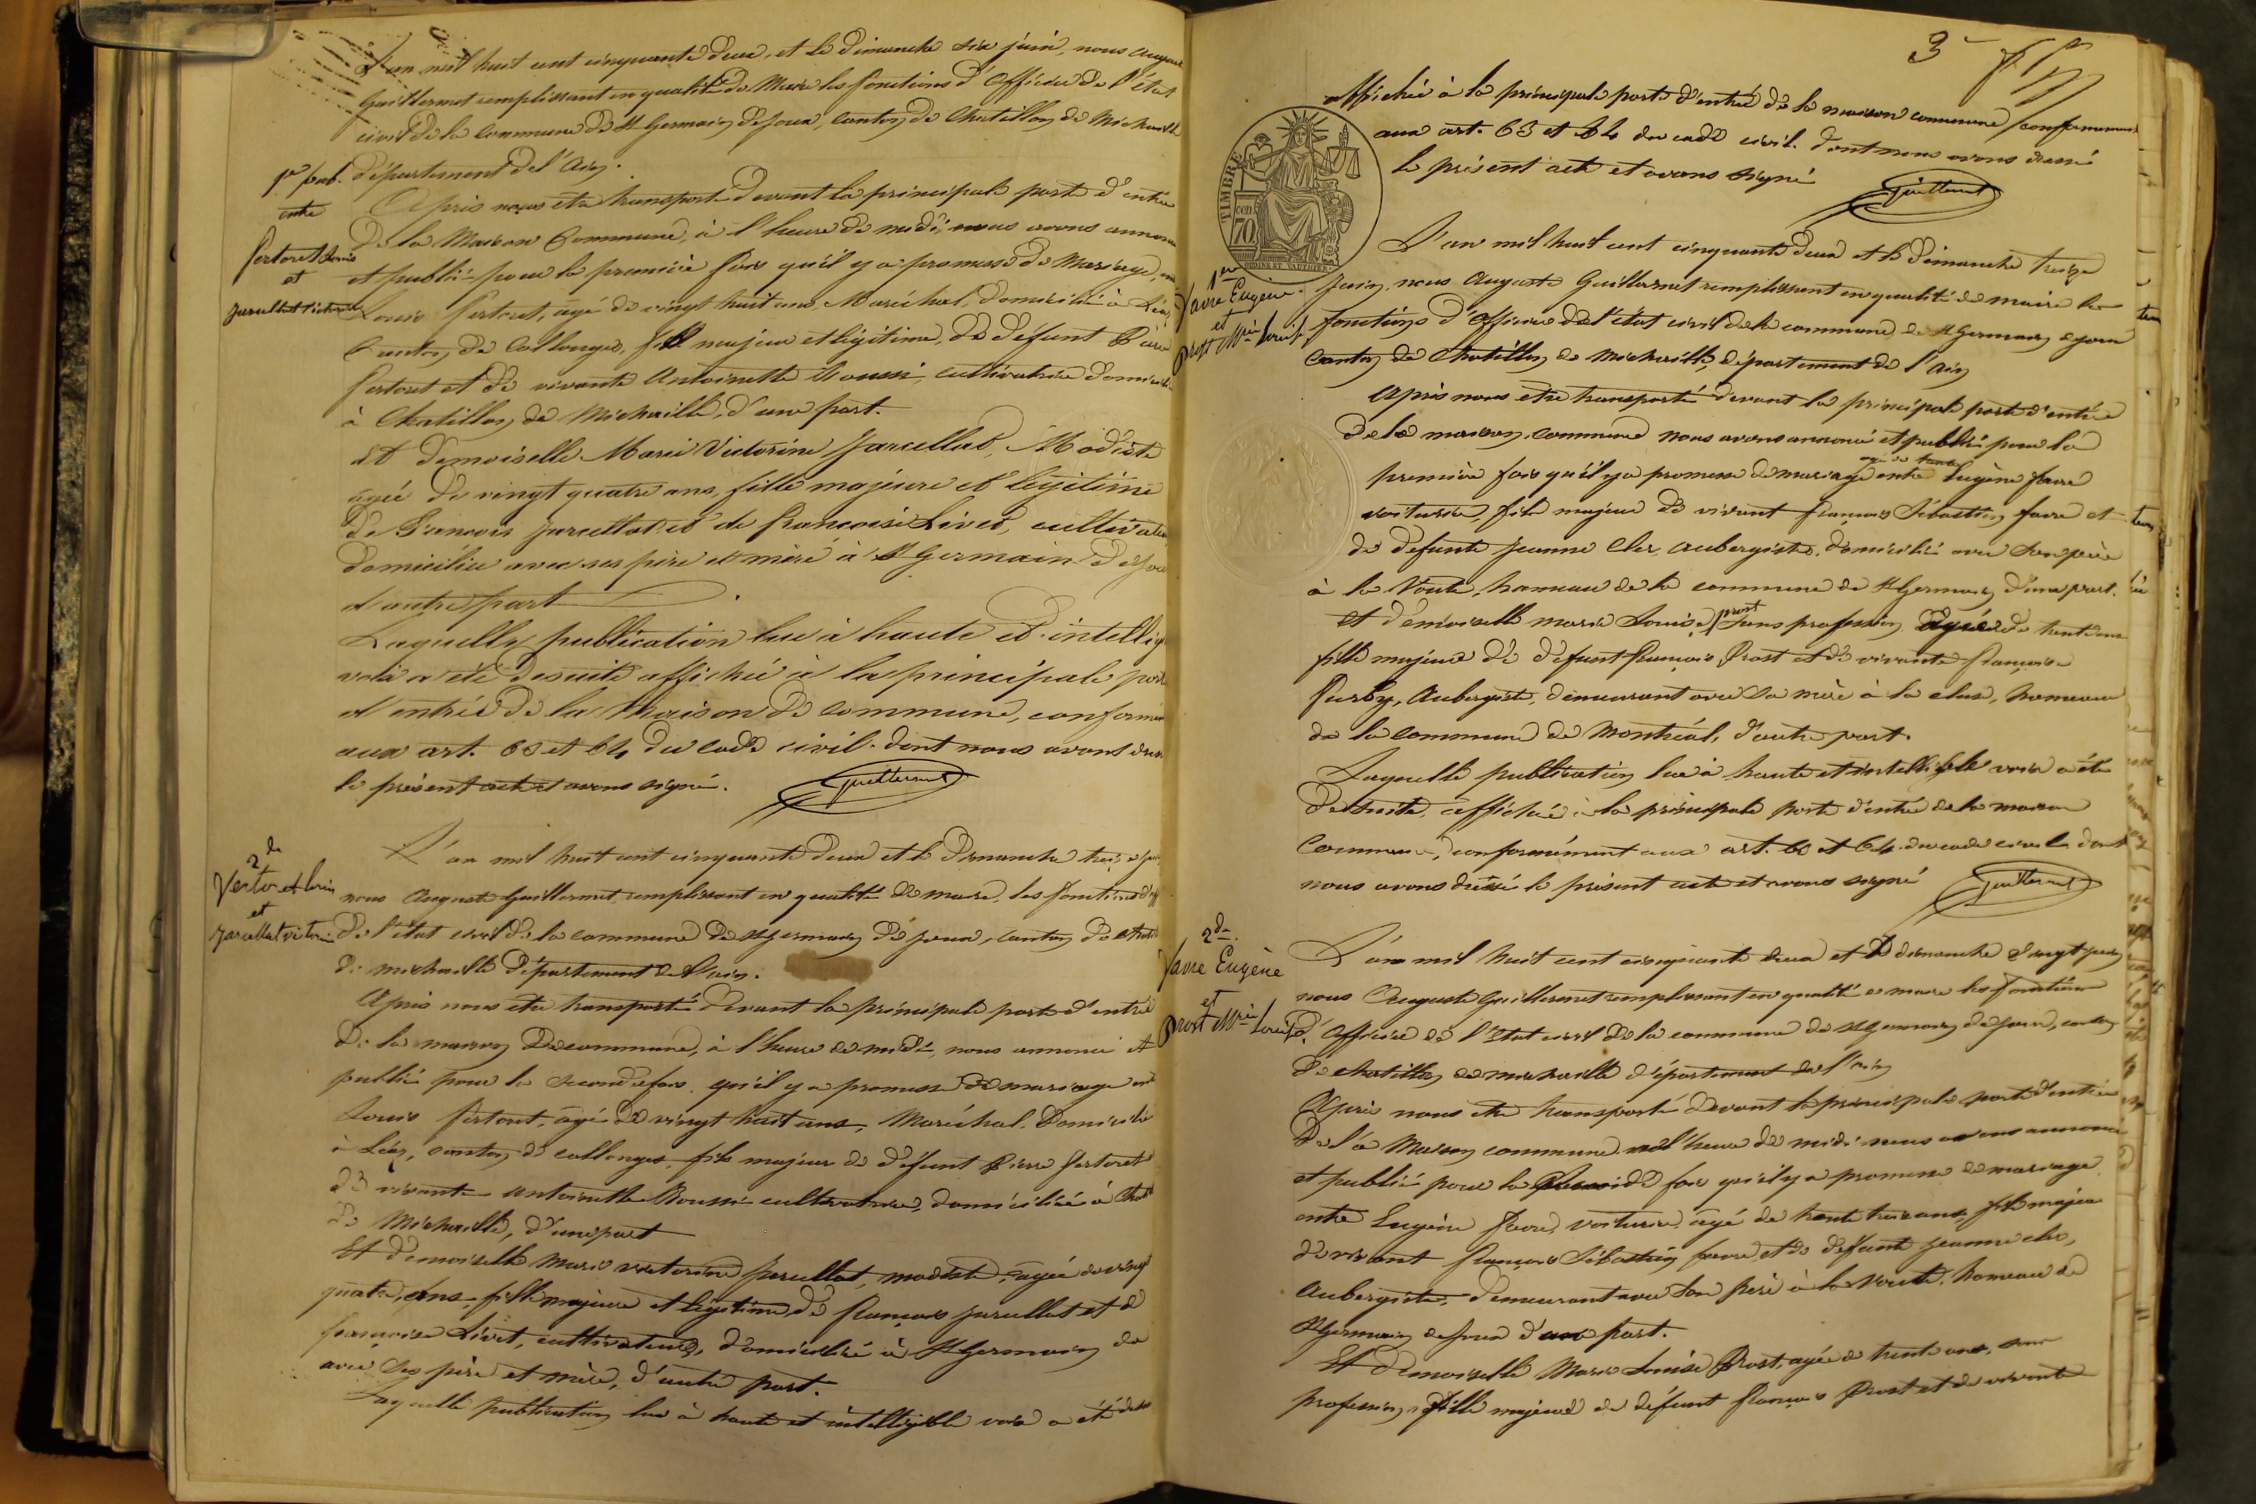 L'an mil huit cent cinquante deux, et le dimanche six juin, nous Auguste
Guillermet remplissant en qualité de Maire les fonctions d'Officier de l'état
civil de la Commune de St Germain de Joux, canton de Chatillon de Michaille
département de l'Ain.
1re pub.
entre
Fertoret Louis
et
Jarcellat Victorine
Après nous être transporté devant la principale porte d'entrée
de la Maison Commune, à l'heure de midi, nous avons annoncé
et publié pour la première fois qu'il y a promesse de Mariage, entre
Louis Fertoret, âgé de vingt huit ans, Maréchal, domicilié à Léaz,
Canton de Collonges, fils majeur et légitime, de défunt Pierre
Fertoret et de vivante Antoinette Roussi, cultivatrice domiciliée
à Chatillon de Michaille, d'une part.
Et demoiselle Marie Victorine Jarcellat, Modiste
âgée de vingt quatre ans, fille majeure et légitime
de François Jarcellat et de françoise Livet, cultivateurs
domiciliée avec ses père et mère à St Germain de Joux
d'autre part
Laquelle publication lue à haute et intelligible
voix a été de suite affichée à la principale porte
d'entrée de la Maison de Commune, conformément
aux art. 63 et 64 du code civil. dont nous avons dressé
le présent acte et avons signé.
Guillermet
2de
Fertoret Louis
et
Jarcellat Victorine
L'an mil huit cent cinquante deux et le Dimanche treize juin
nous Auguste Guillermet, remplissant en qualité de maire, les fonctions d'off
de l'état civil de la commune de St Germain de joux, canton de Chatillon
de michaille département de l'ain.
Après nous être transporté devant la principale porte d'entrée
de la maison de commune, à l'heure de midi, nous annoncé et
publié pour la seconde fois qu'il y a promesse de mariage entre
Louis Fertoret, âgé de vingt huit ans, Maréchal, domicilié
à Léaz, canton de collonges, fils majeur de défunt Pierre Fertoret
de vivante antoinette Roussi cultivatrice, domiciliée à Chatillon
de Michaille, d'une part
Et demoiselle Marie victorine Jarcellat, modiste, âgée de vingt
quatre ans, fille majeure et légitime, de françois jarcellat et de
françoise Livet, cultivateurs, domiciliée à St Germain de
avec ses père et mère, d'autre part.
Laquelle publication lue à haute et intelligible voix a été de suite
3
affichée à la principale porte d'entrée de la maison commune, conformément
aux art. 63 et 64 du code civil. dont nous avons dressé
le présent acte et avons signé
Guillermet
TIMBRE
CEN
70
1re
Favre Eugène
et
Prost Mrie Louise
L'an mil huit cent cinquante deux et le dimanche treize
juin, nous Auguste Guillermet remplissant en qualité de maire les
fonctions d'officier de l'état civil de la commune de St Germain de joux
canton de Chatillon de Michaille, département de l'ain
Après nous être transporté devant la principale porte d'entrée
de la maison commune nous avons annoncé et publié pour la
première fois qu'il y a promesse de mariage entre Eugène favre
âgé de trente
voiturier, fils majeur de vivant françois Sébastien favre et
de défunte jeanne Cler, Aubergiste, domicilié avec son père
à la Voute, hameau de la commune de St Germain d'une part.
et demoiselle marie Louise prost sans profession âgée de trente ans
fille majeure de défunt françois Prost et de vivante françoise
Aubergiste, demeurant avec sa mère à la cluse, hameau
de la commune de Montréal, d'autre part.
Laquelle publication lue à haute et intelligible voix a été
de suite, affichée à la principale porte d'entrée de la maison
Commune, conformément aux art. 63 et 64 du code civil. dont
nous avons dressé le présent acte et avons signé
Guillermet
2de
Favre Eugène
et
Prost Mrie Louise
L'an mil huit cent cinquante deux et le dimanche vingt juin
nous Auguste Guillermet remplissant en qualité de maire les fonctions
d'officier de l'Etat civil de la commune de St Germain de Joux, canton
de chatillon de michaille département de l'ain
Après nous être transporté devant la principale porte d'entrée
de la Maison commune à l'heure de midi nous avons annoncé
et publié pour la seconde fois qu'il y a promesse de mariage
entre Eugène Favre, voiturier, âgé de trente trois ans, fils majeur
de vivant françois Sébastien favre et de défunte jeanne cler,
Aubergiste, demeurant avec son père à la Voute, hameau de
St Germain de Joux d'une part.
Et demoiselle Marie Louise Prost, âgée de trente ans, sans
profession, fille majeure de défunt françois Prost et de vivante